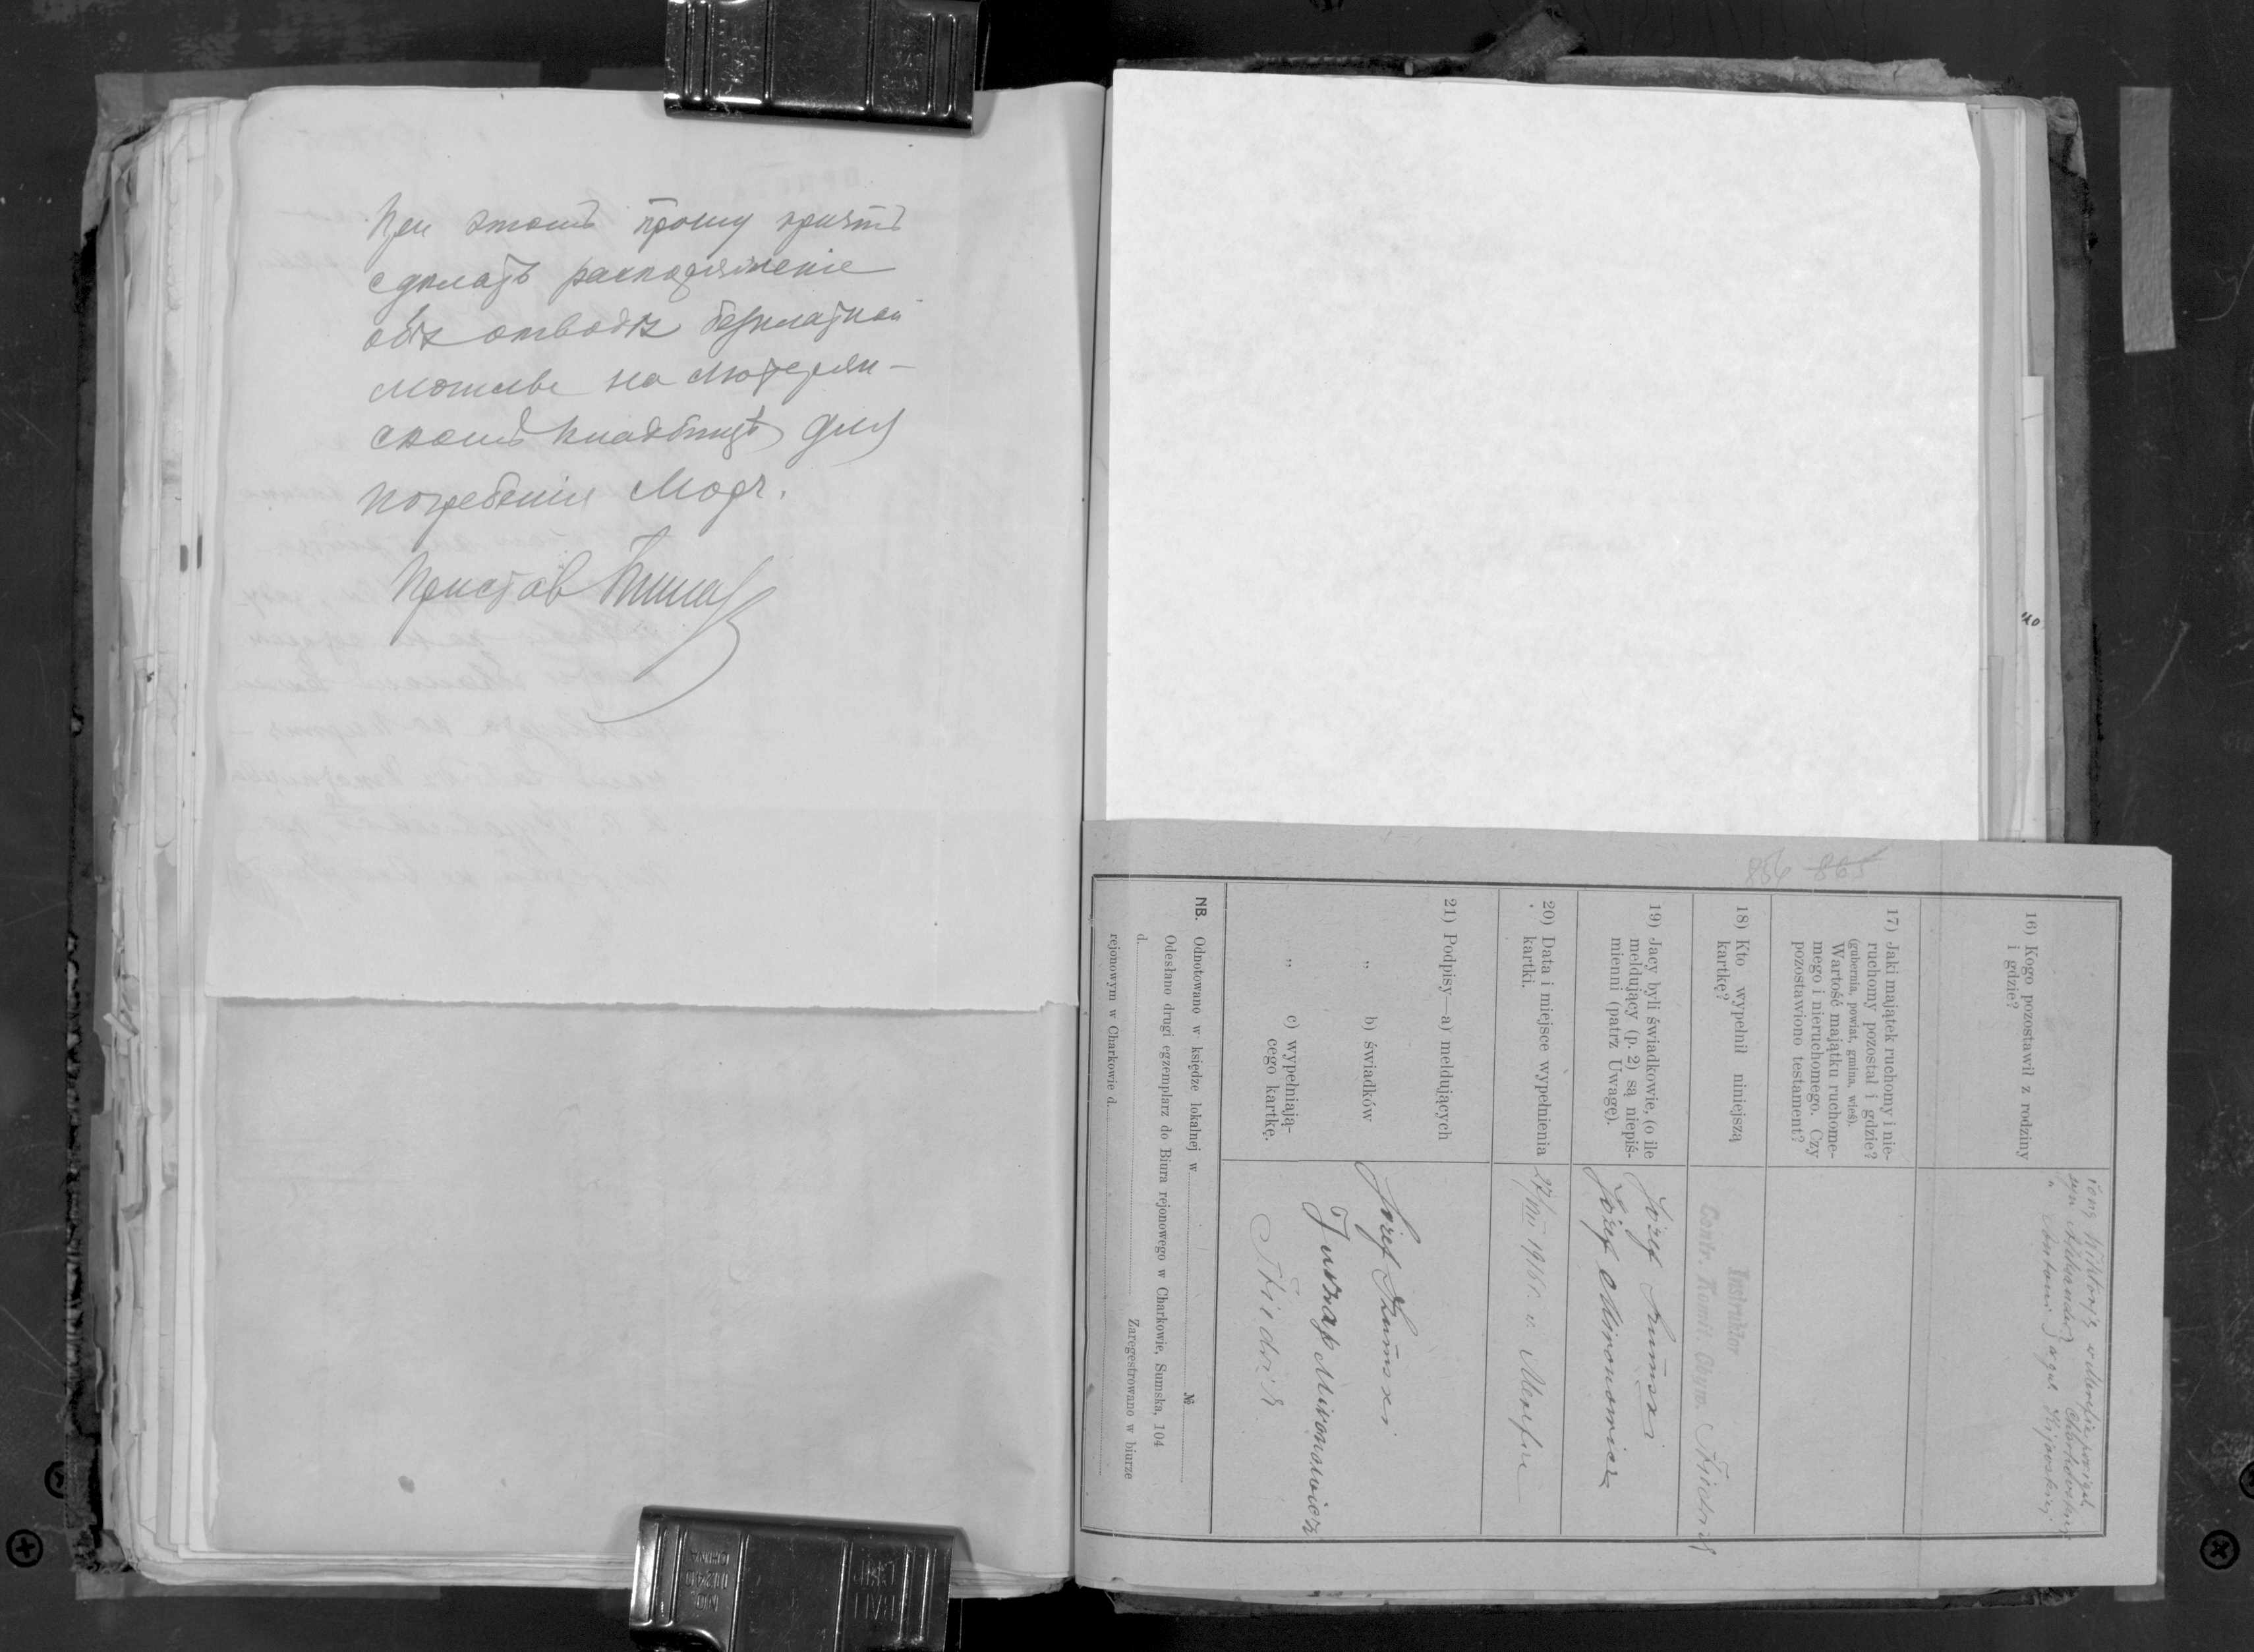 При этомъ прошу принять
сделать распоряженіе
объ отводѣ безплатной
могилы на Лютеран-
скомъ кладбищѣ для
погребенія Моор.
Пристав
854 865
16) Kogo pozostawił z rodziny
i gdzie?
żonę Wiktorję w Merefie powiat
syn Aleksander Charkowski
" Antoni
17) Jaki majątek ruchomy i nie-
ruchomy pozostał i gdzie?
(gubernia, powiat, gmina, wieś).
Wartość majątku ruchome-
mego i nieruchomego. Czy
pozostawiono testament?
18) Kto wypełnił niniejszą
kartkę?
Instruktor
Centr. Komit. Obyw. Friedrich
19) Jacy byli świadkowie, (o ile
meldujący (p. 2) są niepiś-
mienni (patrz Uwagę).
Józef Szumski
Józef Mironowicz
20) Data i miejsce wypełnienia
kartki.
27/VIII 1916 r. w Merefie
21) Podpisy—a) meldujących
„ b) świadków
Jozef Szumski
Juzzap Mironowicz
„ c) wypełniają-
cego kartkę.
Friedrich
NB. Odnotowano w księdze lokalnej w № 
Odesłano drugi egzemplarz do Biura rejonowego w Charkowie, Sumska, 104
d. Zaregestrowano w biurze
rejonowym w Charkowie d.